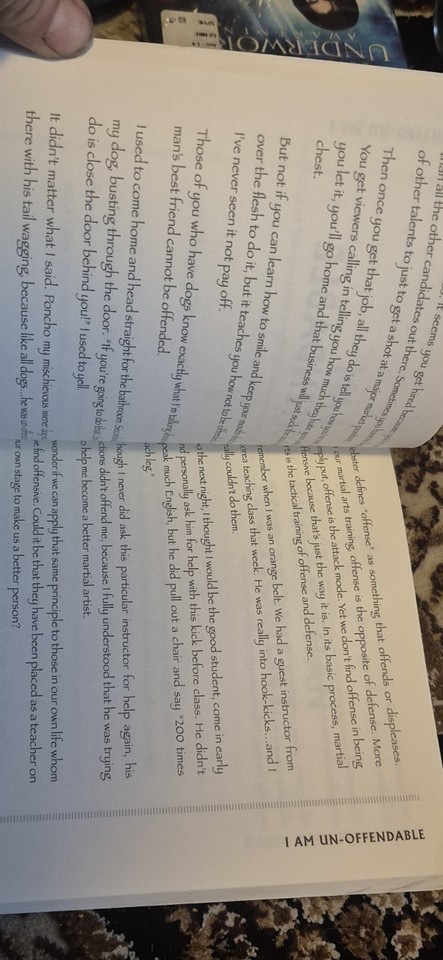 it seems you get hired because
all the other candidates out there. Sometimes
of other talents to just to get a shot at a major
Then once you get that job, all they do is tell you
You get viewers calling in telling you how much they
you let it, you'll go home and that business will just
chest.
But not if you can learn how to smile and keep your
over the flesh to do it, but it teaches you how not to be
I've never seen it not pay off.
Those of you who have dogs know exactly what I'm
man's best friend cannot be offended.
I used to come home and head straight for the bathroom
my dog, busting through the door. "If you're going to
do is close the door behind you!" I used to yell
It didn't matter what I said, Poncho my mischievous
there with his tail wagging, because like all dogs...he was
I AM UN-OFFENDABLE
defines "offense" as something that offends or displeases.
martial arts training, offense is the opposite of defense. More
put, offense is the attack mode. Yet we don't find offense in being
because that's just the way it is. In its basic process, martial
is the tactical training of offense and defense.
remember when I was an orange belt. We had a guest instructor from
teaching class that week. He was really into hook-kicks...and I
couldn't do them.
the next night, I thought I would be the good student, come in early
personally ask him for help with this kick before class. He didn't
much English, but he did pull out a chair and say "200 times
leg."
I never did ask this particular instructor for help again, his
didn't offend me, because I fully understood that he was trying
help me become a better martial artist.
wonder if we can apply that same principle to those in our own life whom
find offensive. Could it be that they have been placed as a teacher on
own stage to make us a better person?
UNDERWOR
AWAKENIN